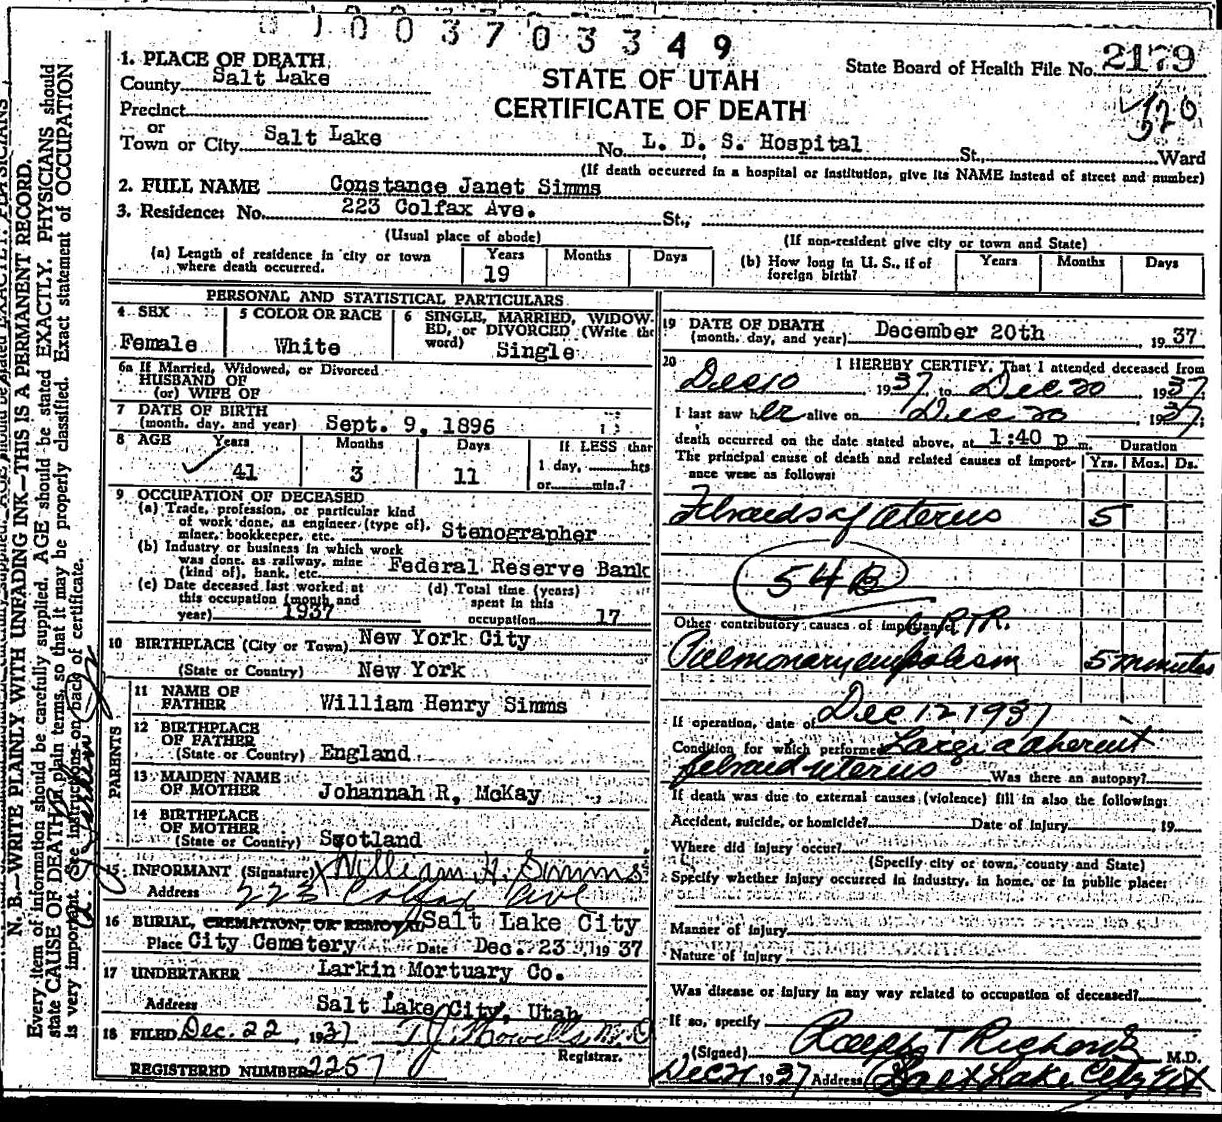 0 1 0 0 3 7 0 3 3 4 9
1. PLACE OF DEATH
County Salt Lake
Precinct
or
Town or City Salt Lake
STATE OF UTAH
CERTIFICATE OF DEATH
State Board of Health File No. 2179
No. L. D. S. Hospital St., Ward
(If death occurred in a hospital or institution, give its NAME instead of street and number)
2. FULL NAME Constance Janet Simms
3. Residence: No. 223 Colfax Ave. St.,
(Usual place of abode) (If non-resident give city or town and State)
(a) Length of residence in city or town where death occurred. Years 19 Months Days
(b) How long in U. S., if of foreign birth? Years Months Days
PERSONAL AND STATISTICAL PARTICULARS
4 SEX Female
5 COLOR OR RACE White
6 SINGLE, MARRIED, WIDOWED, or DIVORCED (Write the word) Single
6a If Married, Widowed, or Divorced
HUSBAND OF
(or) WIFE OF
7 DATE OF BIRTH
(month, day, and year) Sept. 9, 1896
8 AGE Years 41 Months 3 Days 11 If LESS than 1 day, hrs or min.?
9 OCCUPATION OF DECEASED
(a) Trade, profession, or particular kind
of work done, as engineer (type of),
miner, bookkeeper, etc. Stenographer
(b) Industry or business in which work
was done, as railway, mine
(kind of), bank, etc. Federal Reserve Bank
(c) Date deceased last worked at
this occupation (month and
year) 1937
(d) Total time (years)
spent in this
occupation 17
10 BIRTHPLACE (City or Town) New York City
(State or Country) New York
PARENTS
11 NAME OF
FATHER William Henry Simms
12 BIRTHPLACE
OF FATHER
(State or Country) England
13 MAIDEN NAME
OF MOTHER Johannah R. McKay
14 BIRTHPLACE
OF MOTHER
(State or Country) Scotland
15 INFORMANT (Signature) William H. Simms
Address 223 Colfax Ave
16 BURIAL, CREMATION, OR REMOVAL Salt Lake City
Place City Cemetery Date Dec. 23 1937
17 UNDERTAKER Larkin Mortuary Co.
Address Salt Lake City, Utah
18 FILED Dec. 22, 1937 T J Howells M.D.
Registrar.
REGISTERED NUMBER 2257
19 DATE OF DEATH
(month, day, and year) December 20th 1937
20 I HEREBY CERTIFY, That I attended deceased from
Dec 10 1937 to Dec 20 1937
I last saw her alive on Dec 20 1937;
death occurred on the date stated above, at 1:40 p m. Duration
The principal cause of death and related causes of importance were as follows: Yrs. Mos. Ds.
Fibroids of uterus 5
54B
Other contributory causes of importance: RTR.
Pulmonary embolism 5 minutes
If operation, date of Dec 12 1937
Condition for which performed Large adherent
fibroid uterus Was there an autopsy?
If death was due to external causes (violence) fill in also the following:
Accident, suicide, or homicide? Date of injury , 19
Where did injury occur?
(Specify city or town, county and State)
Specify whether injury occurred in industry, in home, or in public place:
Manner of injury
Nature of injury
Was disease or injury in any way related to occupation of deceased?
If so, specify
(Signed) Ralph T Richards M.D.
Dec 21 1937 Address Salt Lake City Ut
N. B.—WRITE PLAINLY WITH UNFADING INK—THIS IS A PERMANENT RECORD.
Every item of information should be carefully supplied. AGE should be stated EXACTLY. PHYSICIANS should
state CAUSE OF DEATH in plain terms, so that it may be properly classified. Exact statement of OCCUPATION
is very important. See instructions on back of certificate.